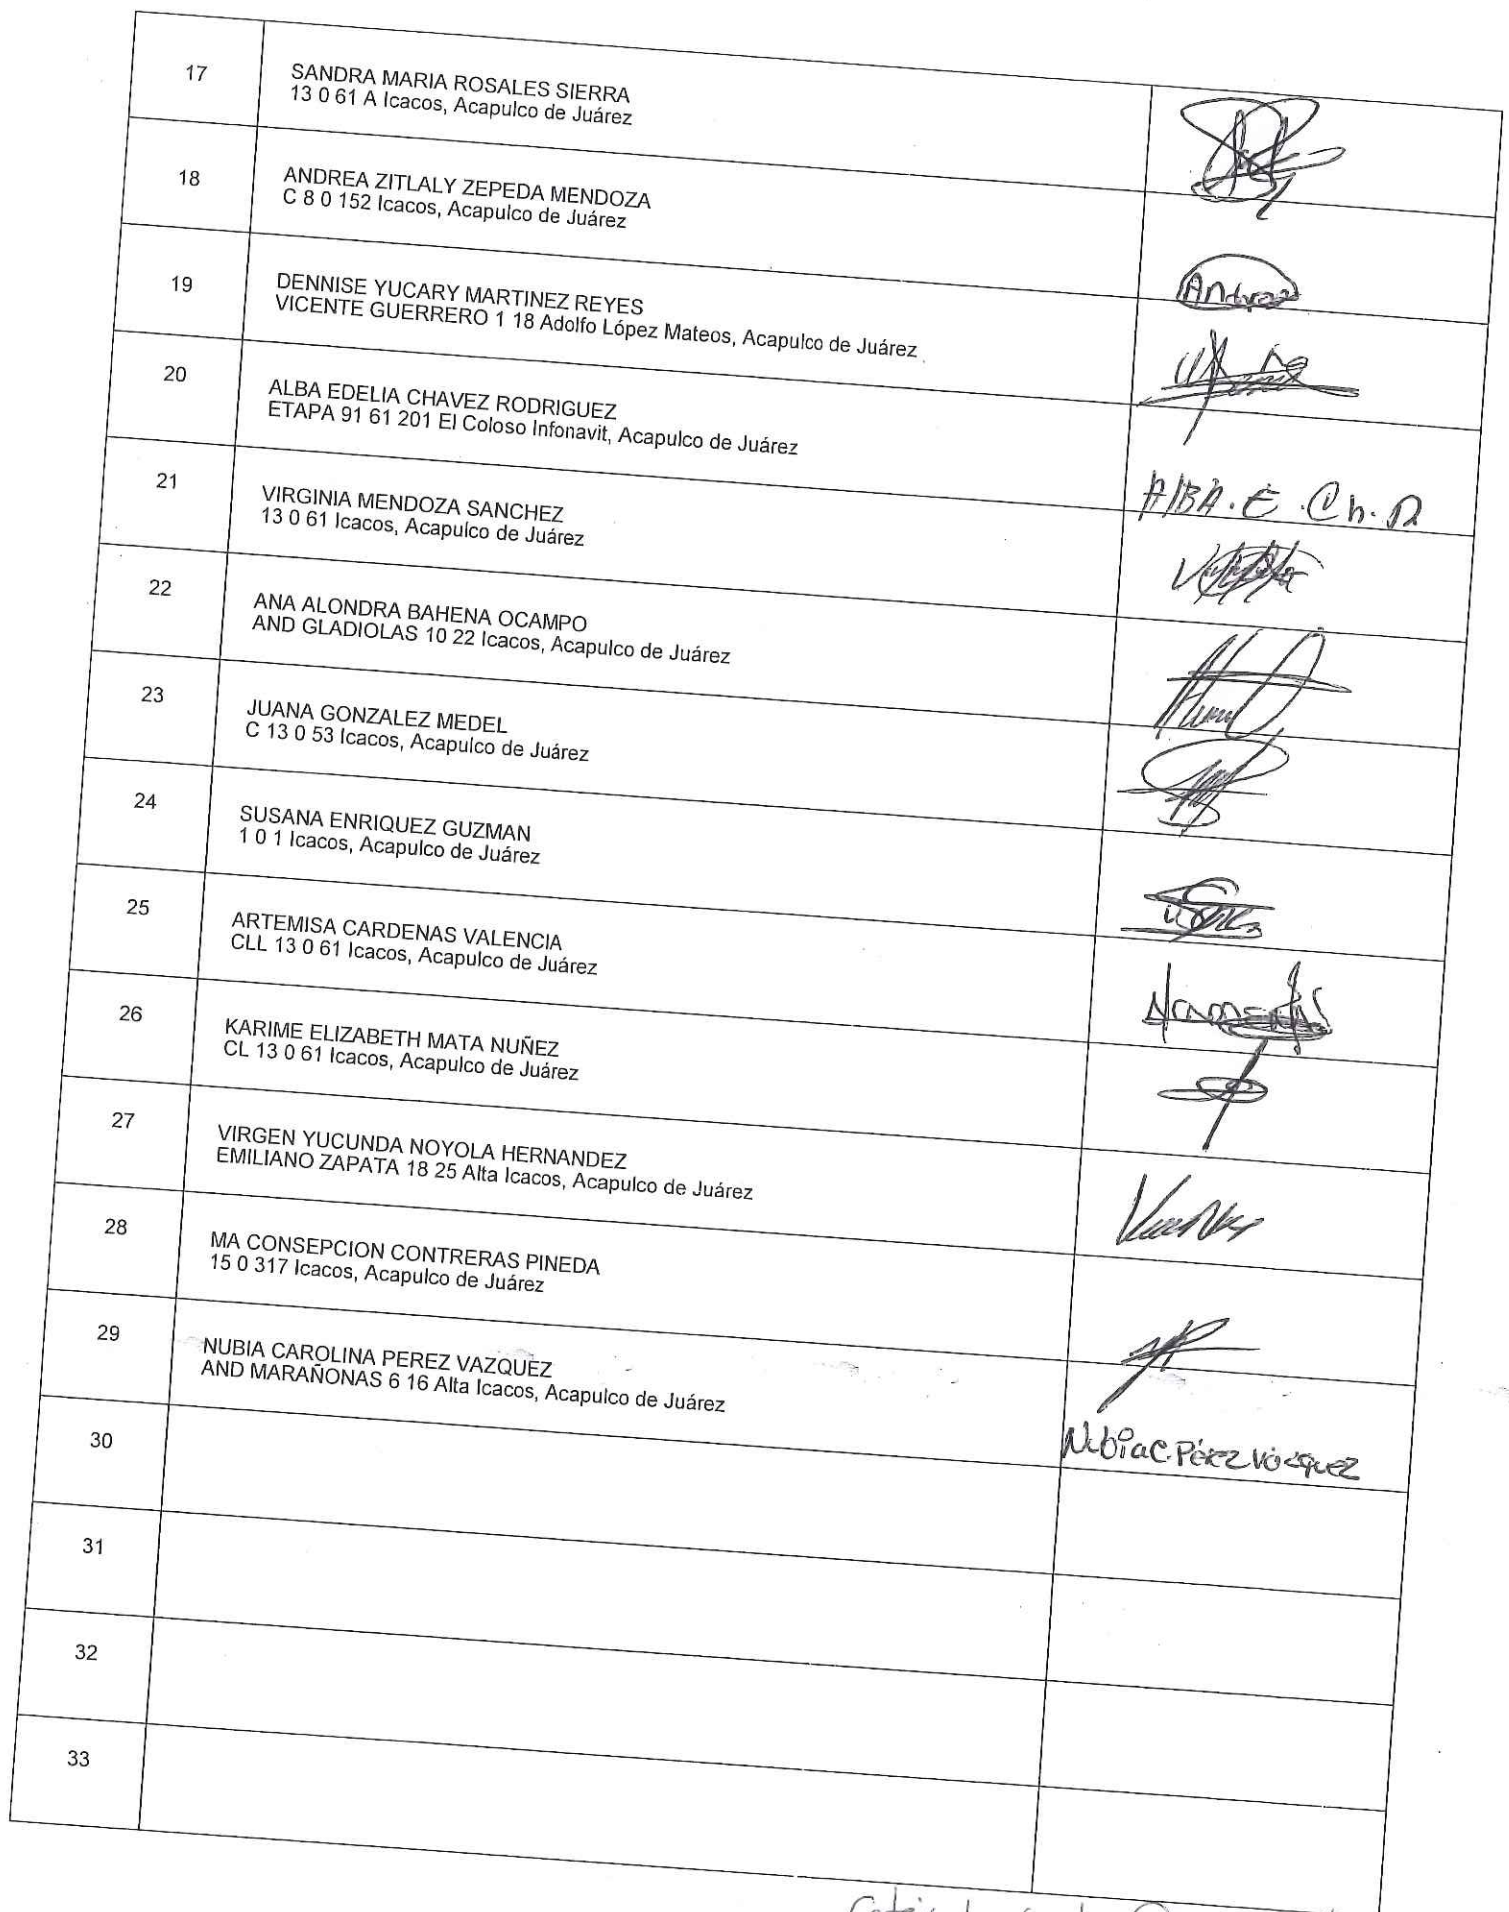 17
SANDRA MARIA ROSALES SIERRA
13 0 61 A Icacos, Acapulco de Juárez
18
ANDREA ZITLALY ZEPEDA MENDOZA
C 8 0 152 Icacos, Acapulco de Juárez
Andrea
19
DENNISE YUCARY MARTINEZ REYES
VICENTE GUERRERO 1 18 Adolfo López Mateos, Acapulco de Juárez
20
ALBA EDELIA CHAVEZ RODRIGUEZ
ETAPA 91 61 201 El Coloso Infonavit, Acapulco de Juárez
AlBA.E.Ch.R
21
VIRGINIA MENDOZA SANCHEZ
13 0 61 Icacos, Acapulco de Juárez
22
ANA ALONDRA BAHENA OCAMPO
AND GLADIOLAS 10 22 Icacos, Acapulco de Juárez
23
JUANA GONZALEZ MEDEL
C 13 0 53 Icacos, Acapulco de Juárez
24
SUSANA ENRIQUEZ GUZMAN
1 0 1 Icacos, Acapulco de Juárez
25
ARTEMISA CARDENAS VALENCIA
CLL 13 0 61 Icacos, Acapulco de Juárez
26
KARIME ELIZABETH MATA NUÑEZ
CL 13 0 61 Icacos, Acapulco de Juárez
27
VIRGEN YUCUNDA NOYOLA HERNANDEZ
EMILIANO ZAPATA 18 25 Alta Icacos, Acapulco de Juárez
28
MA CONSEPCION CONTRERAS PINEDA
15 0 317 Icacos, Acapulco de Juárez
29
NUBIA CAROLINA PEREZ VAZQUEZ
AND MARAÑONAS 6 16 Alta Icacos, Acapulco de Juárez
Nubia C. Pérez Vázquez
30
31
32
33